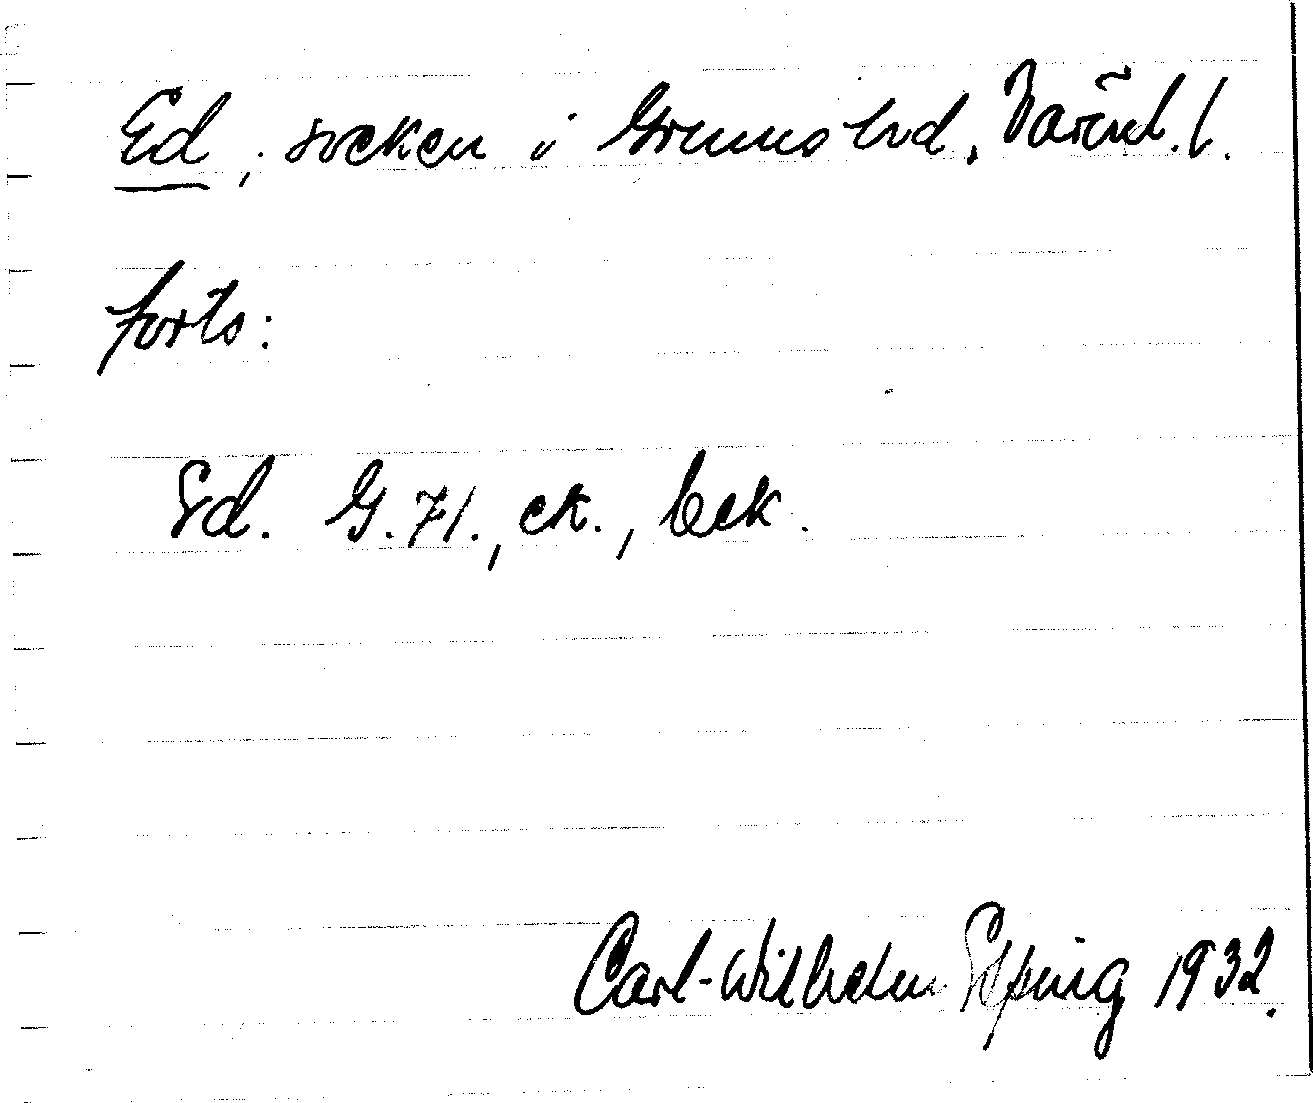 Ed, socken i Grums hd, Värml. l.
forts:
Ed. G. 71., ek., bek.
Carl-Wilhelm Elfving 1932.